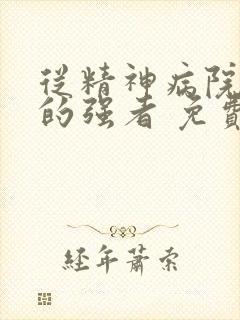 從精神病院
的强者 免費
經年蕭索